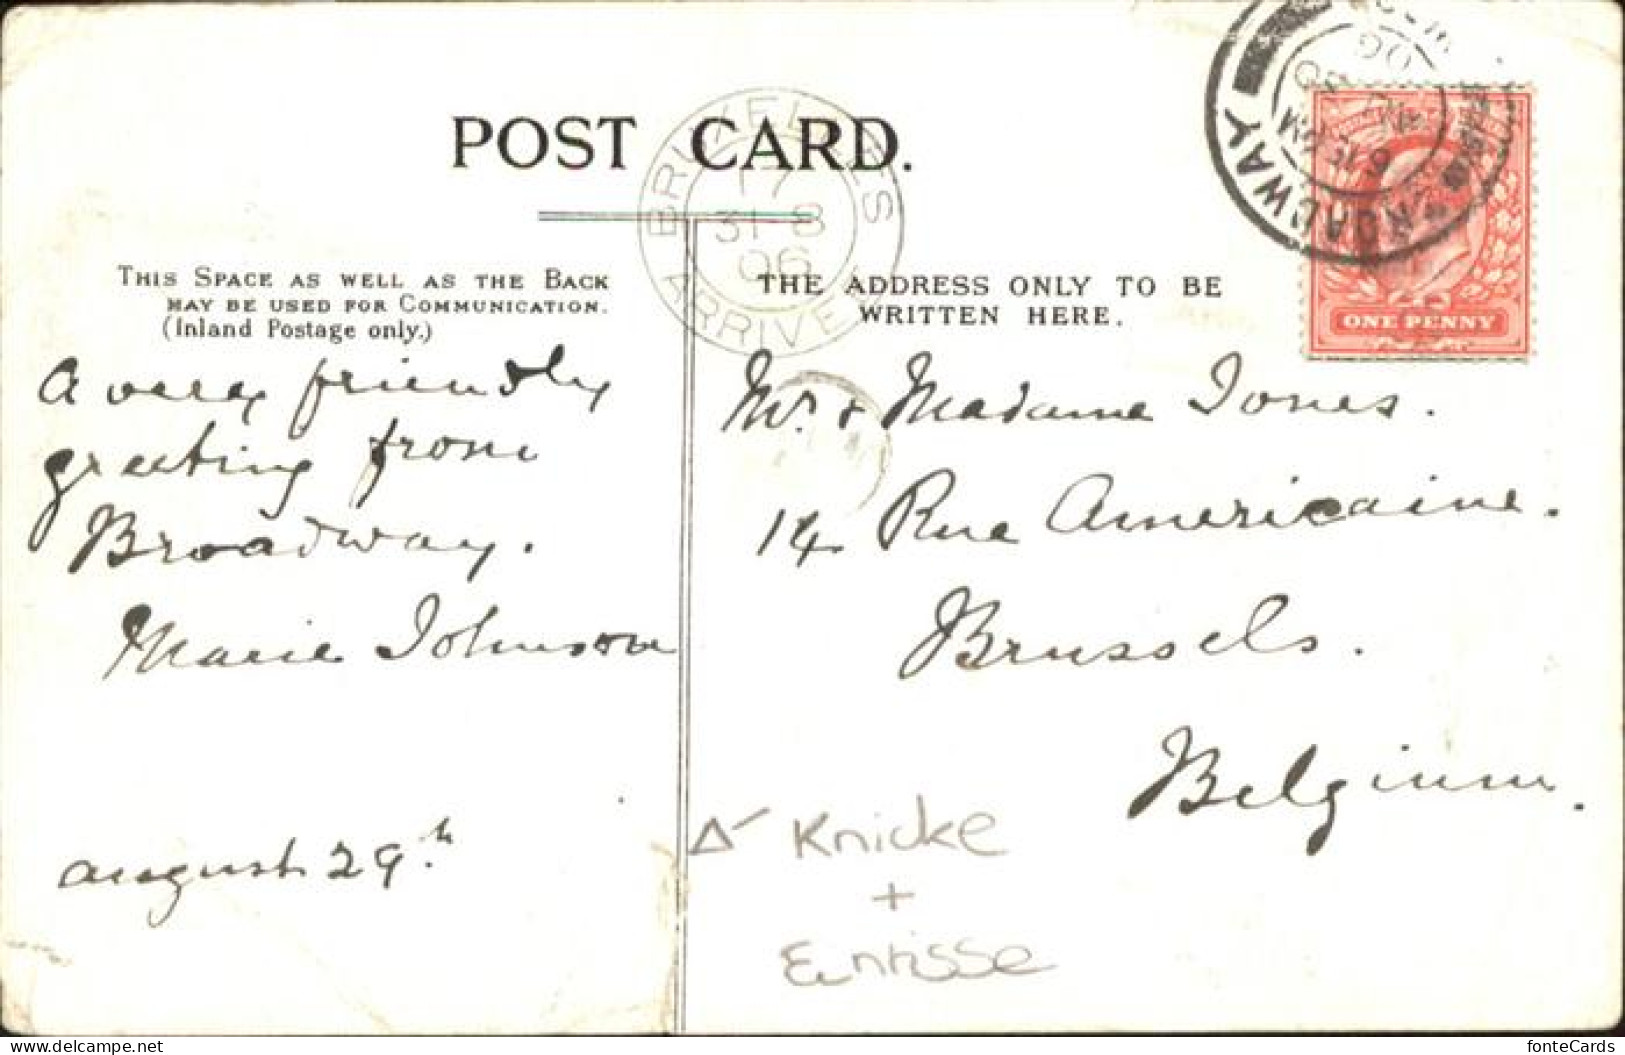 POST CARD.
BRUXELLES
17
31-8
06
ARRIVE
BROADWAY
6.15 PM
AU 30
06
THIS SPACE AS WELL AS THE BACK
MAY BE USED FOR COMMUNICATION.
(Inland Postage only.)
THE ADDRESS ONLY TO BE
WRITTEN HERE.
ONE PENNY
A very friendly
greeting from
Broadway.
Marie Johnson
August 29th
Mr. & Madame Jones.
14 Rue Americaine.
Brussels.
Belgium.
Knicke
+
Einrisse
delcampe.net
fonteCards